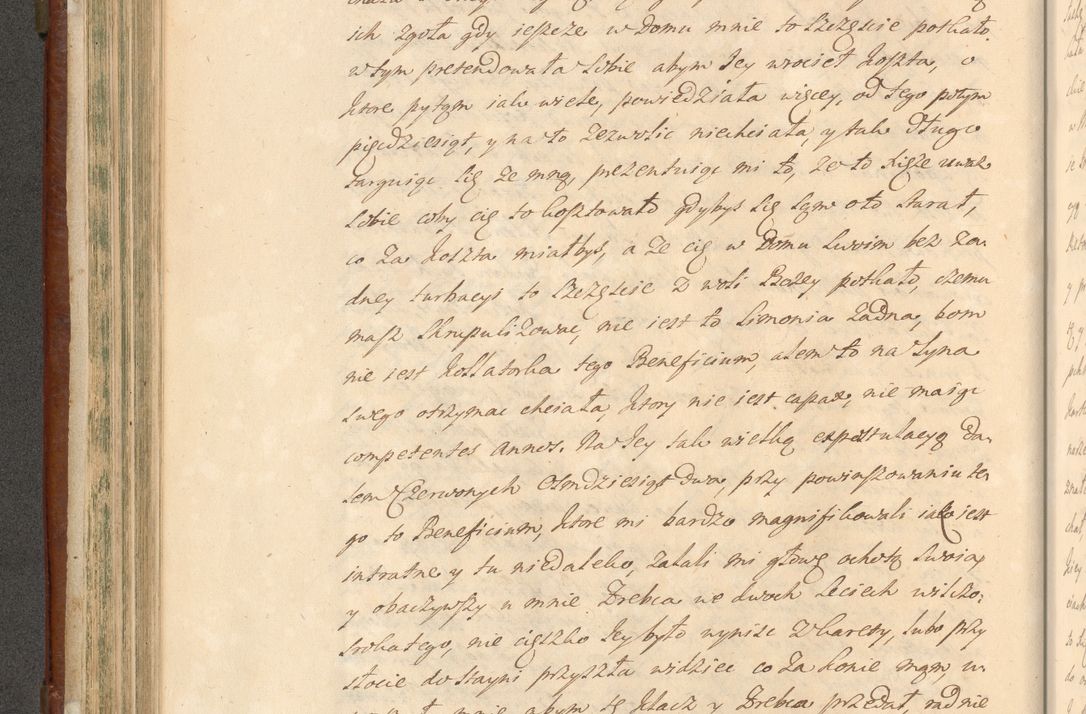 ich zgoła gdy ieszcze w Domu mnie to Szczęscie potkało.
w tym pretendowała sobie abym Jey wrocieł Koszta, o
ktore pytąm iak wiele, powiedziała więcey, od tego potym
pięcdziesiąt, y na to zezwolic niechciała, y tak długo
targuiąc się ze mną, prezentuiąc mi to, ze to Xięże uwaz
sobie coby cię to kosztowało gdybys się sąm oto starał,
co za koszta miałbys, a ze cię w Domu swoim bez za:
dney turbacyi to Szczęscie z woli Bozey potkało, czemu
masz skrupulizowac, nie iest to simonia zadna, bom
nie iest Kollatorka tego Beneficium, alem to na syna
swego otrzymac chciała, ktory nie iest capax, nie maiąc
competentes annos. Na Jey tak wielką expostulacyą da:
łem Czerwonych osmdziesiąt dwa, przy powinszowaniu te:
go to Beneficium, ktore mi bardzo magnifikowali iako iest
intratne y tu niedaleko, zalali mi głowę ochotą swoią,
y obaczywszy u mnie Zrebca we dwoch leciech wilczo:
srokatego, nie cięszko Jey było wynisc z karety, lubo przy
słocie do stayni przyszła widziec co za konie mąm, u:
abym tę Klacz y Zrebca przedał, rad nie